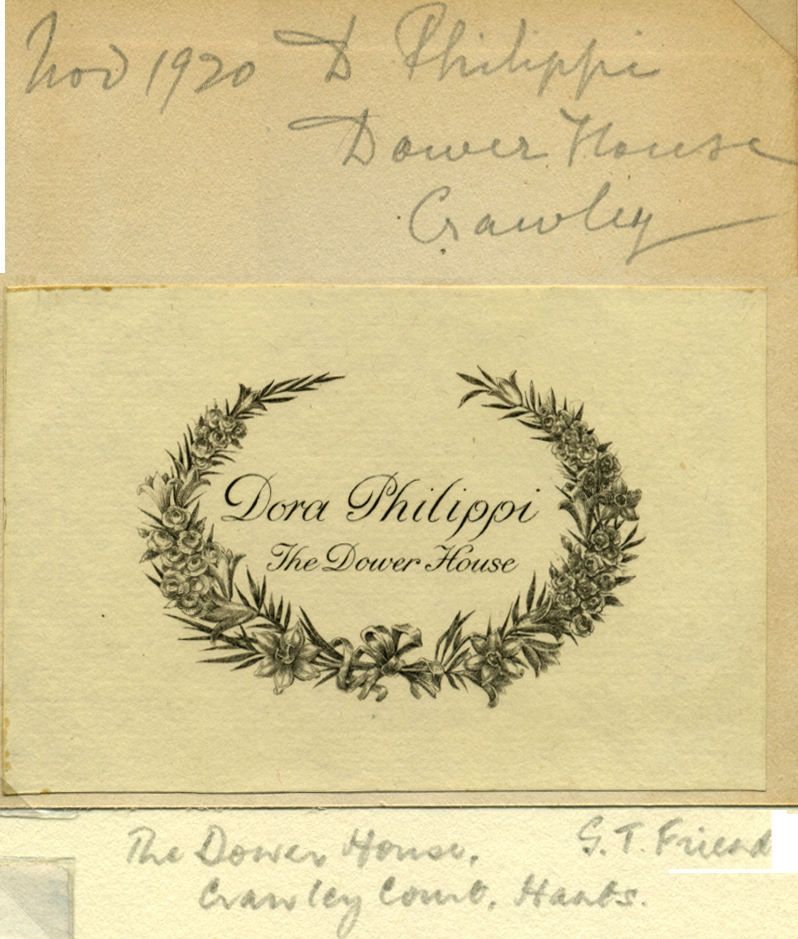 Nov 1920 D Philippi
Dower House
Crawley
Dora Philippi
The Dower House
The Dower House, G. T. Friend
Crawley Court, Hants.